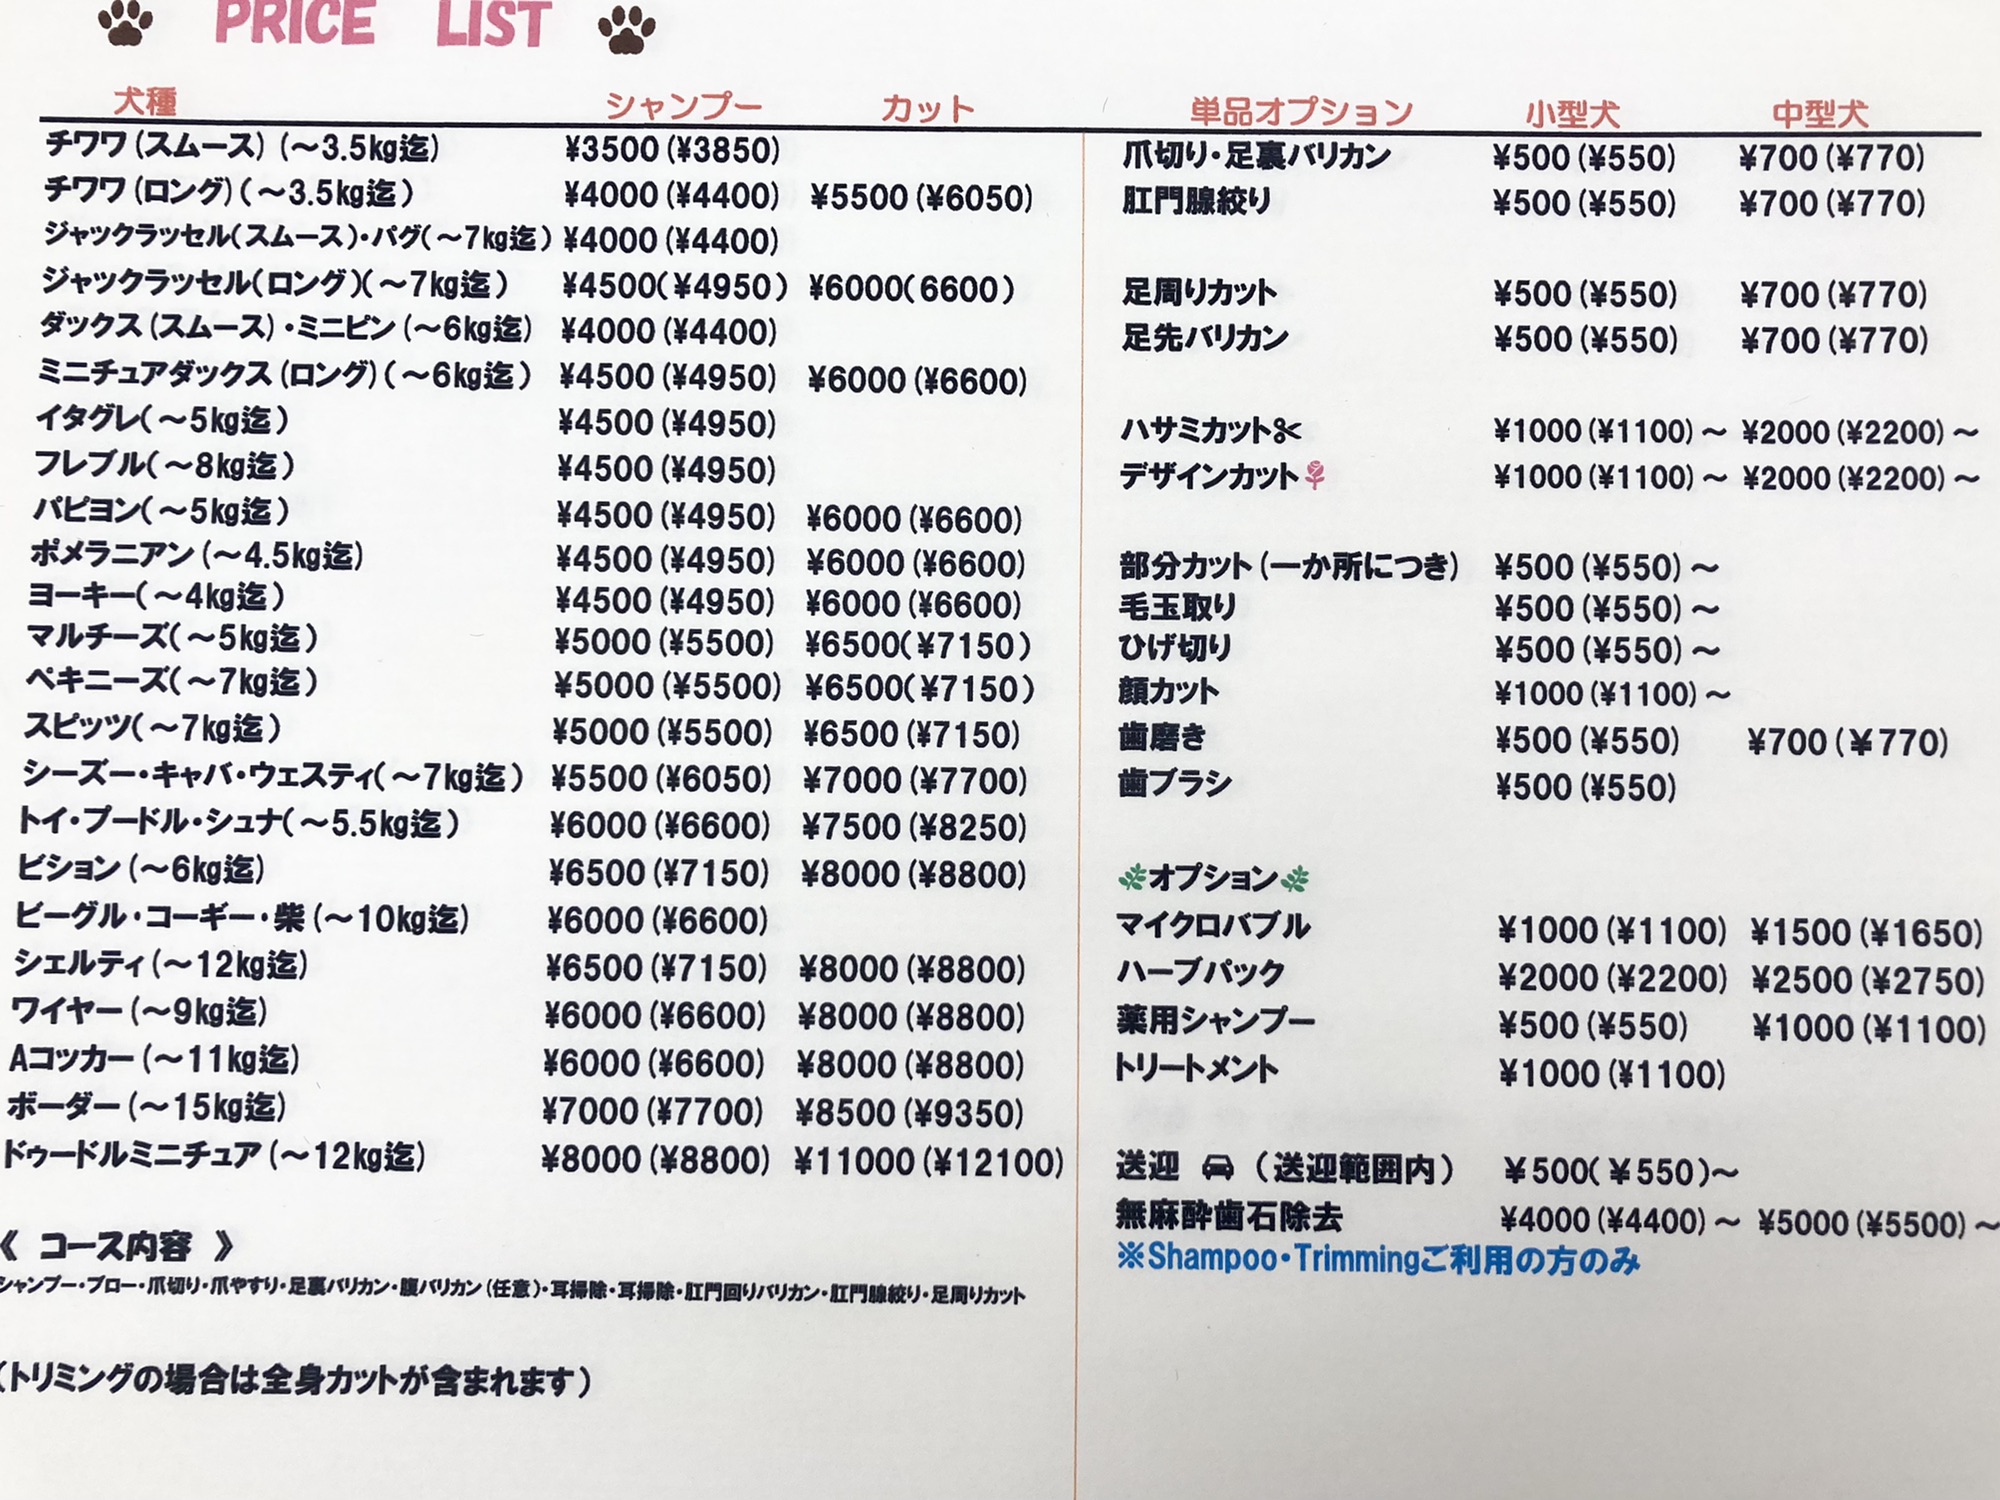 PRICE LIST
犬種 シャンプー カット
チワワ(スムース) (～3.5kg迄) ¥3500(¥3850)
チワワ(ロング)(～3.5kg迄) ¥4000(¥4400) ¥5500(¥6050)
ジャックラッセル(スムース)・パグ(～7kg迄) ¥4000(¥4400)
ジャックラッセル(ロング)(～7kg迄) ¥4500(¥4950) ¥6000(6600)
ダックス(スムース)・ミニピン(～6kg迄) ¥4000(¥4400)
ミニチュアダックス(ロング)(～6kg迄) ¥4500(¥4950) ¥6000(¥6600)
イタグレ(～5kg迄) ¥4500(¥4950)
フレブル(～8kg迄) ¥4500(¥4950)
パピヨン(～5kg迄) ¥4500(¥4950) ¥6000(¥6600)
ポメラニアン(～4.5kg迄) ¥4500(¥4950) ¥6000(¥6600)
ヨーキー(～4kg迄) ¥4500(¥4950) ¥6000(¥6600)
マルチーズ(～5kg迄) ¥5000(¥5500) ¥6500(¥7150)
ペキニーズ(～7kg迄) ¥5000(¥5500) ¥6500(¥7150)
スピッツ(～7kg迄) ¥5000(¥5500) ¥6500(¥7150)
シーズー・キャバ・ウェスティ(～7kg迄) ¥5500(¥6050) ¥7000(¥7700)
トイ・プードル・シュナ(～5.5kg迄) ¥6000(¥6600) ¥7500(¥8250)
ビション(～6kg迄) ¥6500(¥7150) ¥8000(¥8800)
ビーグル・コーギー・柴(～10kg迄) ¥6000(¥6600)
シェルティ(～12kg迄) ¥6500(¥7150) ¥8000(¥8800)
ワイヤー(～9kg迄) ¥6000(¥6600) ¥8000(¥8800)
Aコッカー(～11kg迄) ¥6000(¥6600) ¥8000(¥8800)
ボーダー(～15kg迄) ¥7000(¥7700) ¥8500(¥9350)
ドゥードルミニチュア(～12kg迄) ¥8000(¥8800) ¥11000(¥12100)
《 コース内容 》
シャンプー・ブロー・爪切り・爪やすり・足裏バリカン・腹バリカン(任意)・耳掃除・耳掃除・肛門回りバリカン・肛門腺絞り・足周りカット
(トリミングの場合は全身カットが含まれます)
単品オプション 小型犬 中型犬
爪切り・足裏バリカン ¥500(¥550) ¥700(¥770)
肛門腺絞り ¥500(¥550) ¥700(¥770)
足周りカット ¥500(¥550) ¥700(¥770)
足先バリカン ¥500(¥550) ¥700(¥770)
ハサミカット ¥1000(¥1100)～ ¥2000(¥2200)～
デザインカット ¥1000(¥1100)～ ¥2000(¥2200)～
部分カット(一か所につき) ¥500(¥550)～
毛玉取り ¥500(¥550)～
ひげ切り ¥500(¥550)～
顔カット ¥1000(¥1100)～
歯磨き ¥500(¥550) ¥700(￥770)
歯ブラシ ¥500(¥550)
オプション
マイクロバブル ¥1000(¥1100) ¥1500(¥1650)
ハーブパック ¥2000(¥2200) ¥2500(¥2750)
薬用シャンプー ¥500(¥550) ¥1000(¥1100)
トリートメント ¥1000(¥1100)
送迎 (送迎範囲内) ￥500(￥550)～
無麻酔歯石除去 ¥4000(¥4400)～ ¥5000(¥5500)～
※Shampoo・Trimmingご利用の方のみ